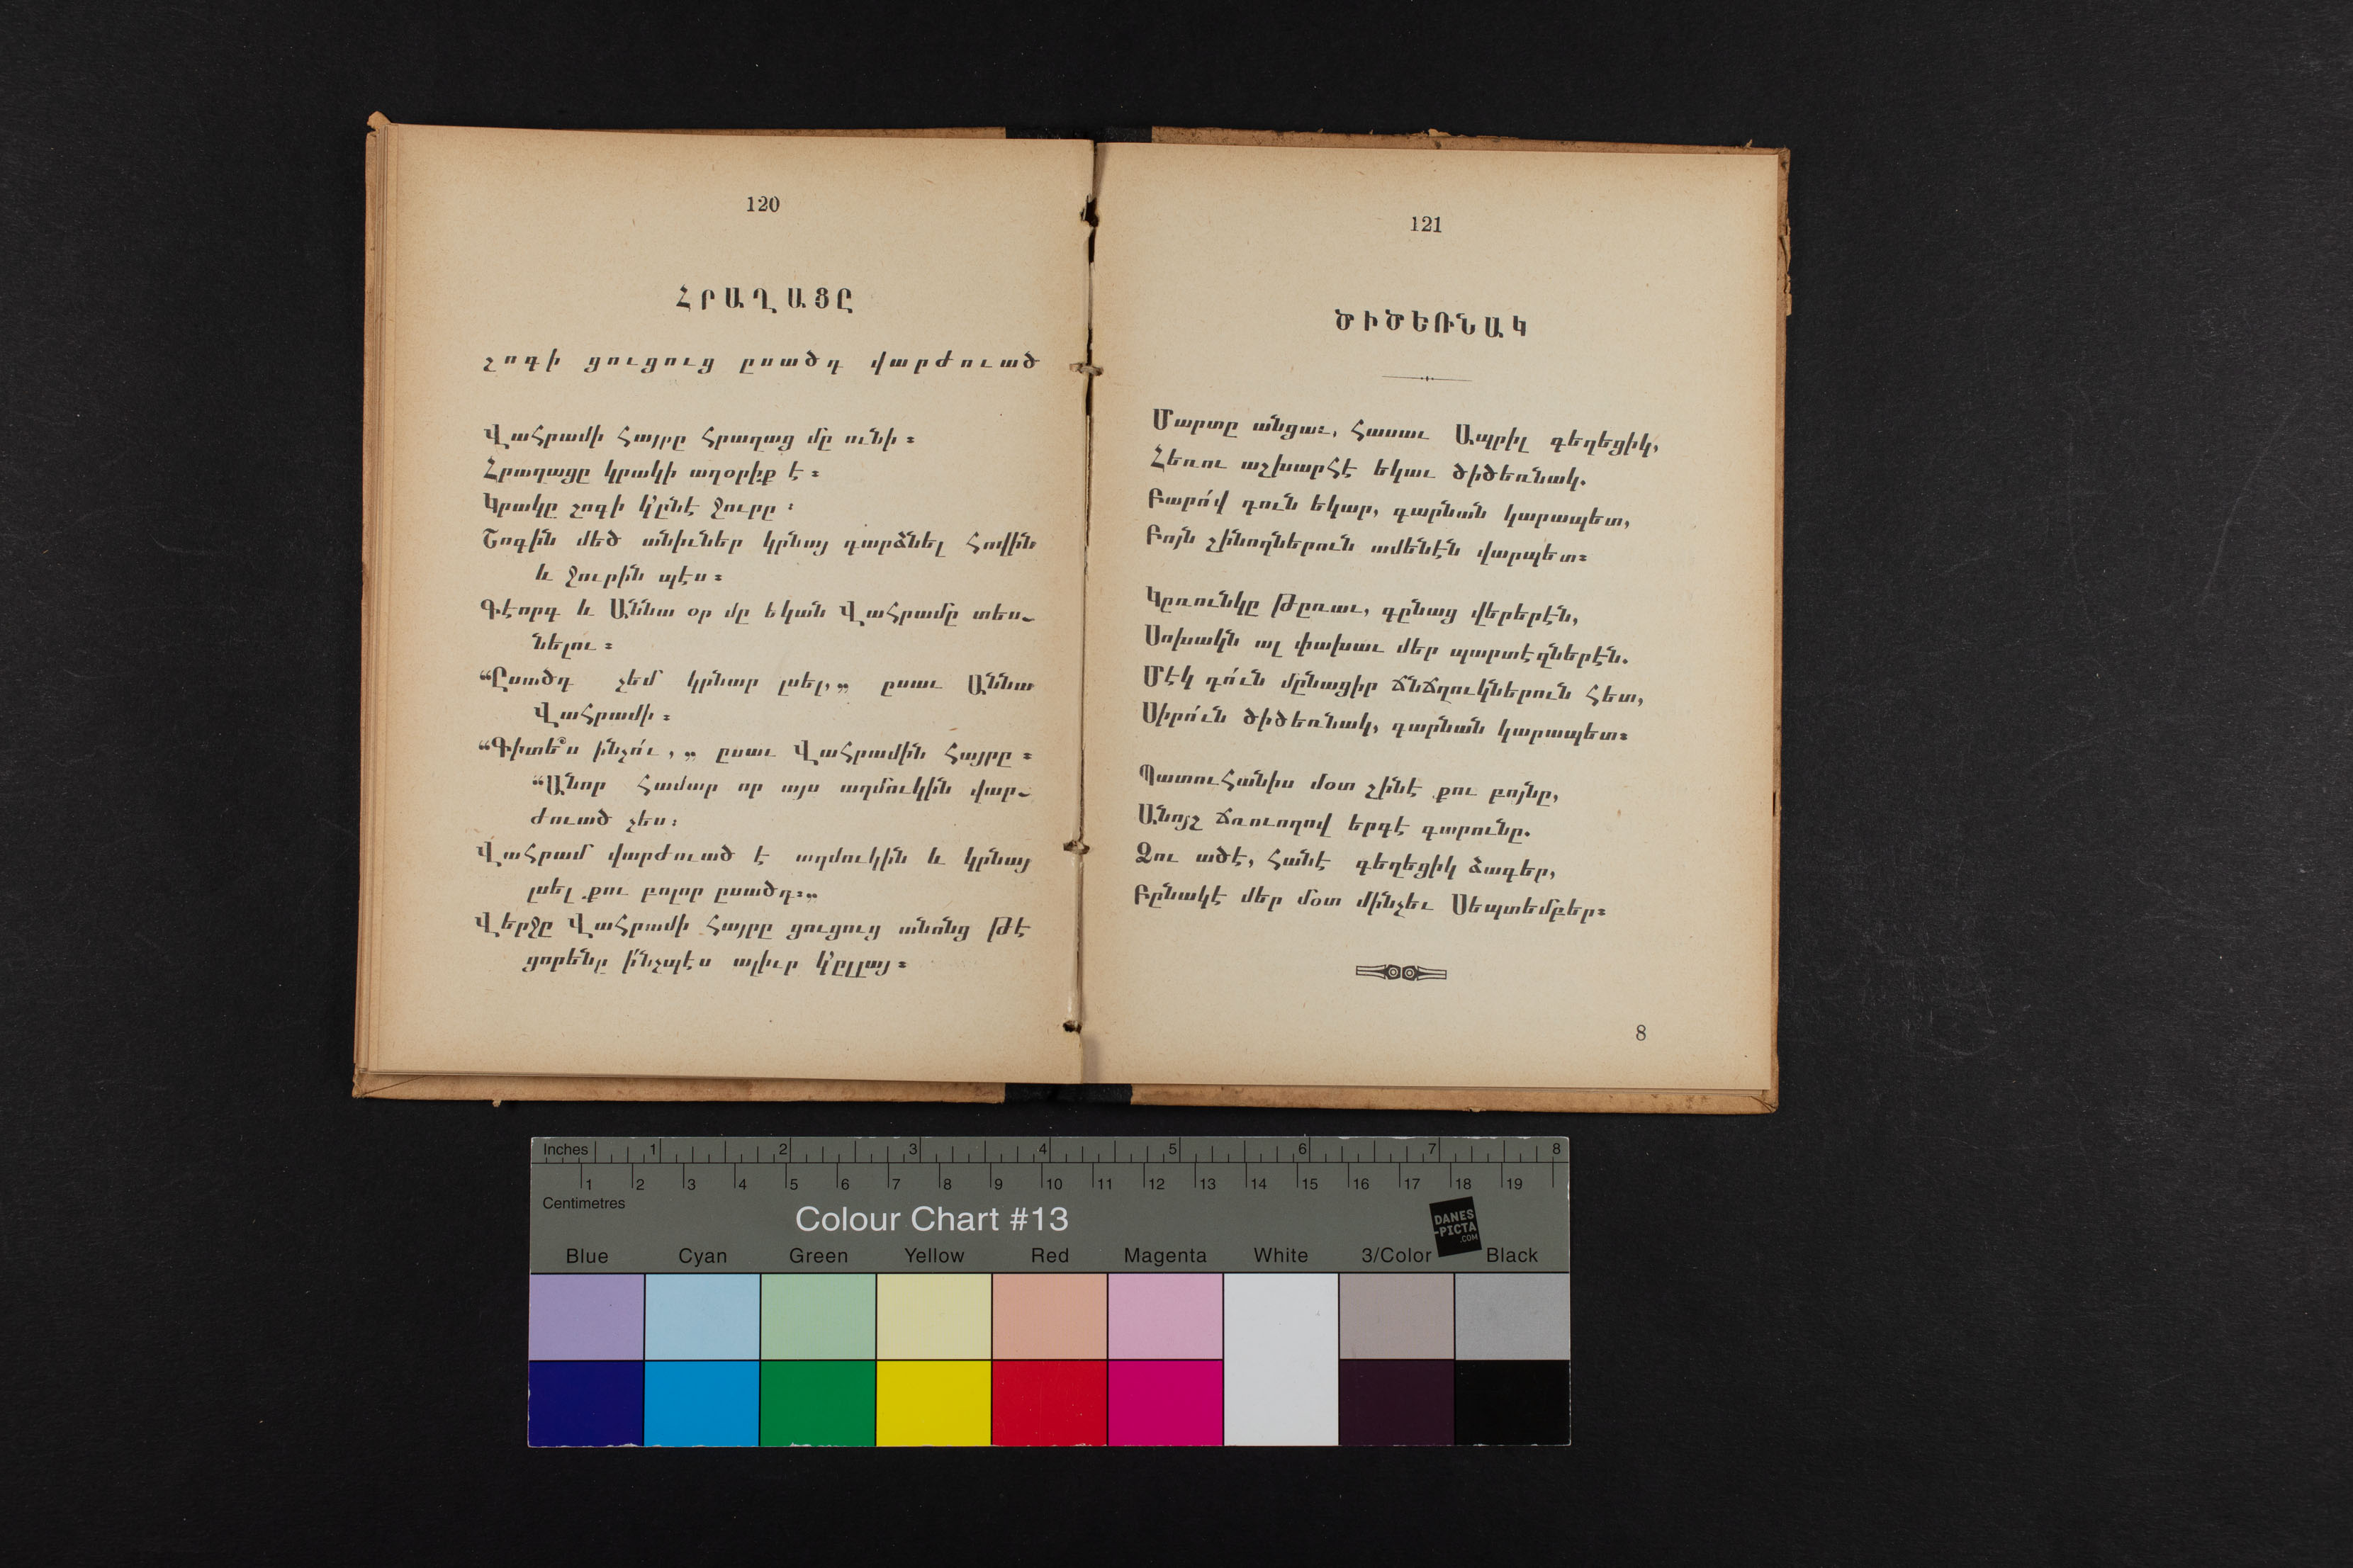 120
ՀՐԱՂԱՑԸ
շոգի ցուցուց ըսածդ վարժուած
Վահրամի հայրը հրաղաց մը ունի։
Հրաղացը կրակի աղօրիք է։
Կրակը շոգի կ՚ընէ ջուրը։
Շոգին մեծ անիւներ կրնայ դարձնել հովին
և ջուրին պէս։
Գէորգ և Աննա օր մը եկան Վահրամը տես֊
նելու։
“Ըսածդ չեմ կրնար լսել,„ ըսաւ Աննա
Վահրամի։
“Գիտե՞ս ինչո՛ւ,„ ըսաւ Վահրամին հայրը։
“Անոր համար որ այս աղմուկին վար֊
ժուած չես։
Վահրամ վարժուած է աղմուկին և կրնայ
լսել քու բոլոր ըսածդ։„
Վերջը Վահրամի հայրը ցուցուց անոնց թէ
ցորենը ի՛նչպէս ալիւր կ՚ըլլայ։
121
ԾԻԾԵՌՆԱԿ
Մարտը անցաւ, հասաւ Ապրիլ գեղեցիկ,
Հեռու աշխարհէ եկաւ ծիծեռնակ.
Բարո՛վ դուն եկար, գարնան կարապետ,
Բոյն շինողներուն ամենէն վարպետ։
Կըռունկը թըռաւ, գընաց վերերէն,
Սոխակն ալ փախաւ մեր պարտէզներէն.
Մէկ դո՛ւն մընացիր ճնճղուկներուն հետ,
Սիրո՛ւն ծիծեռնակ, գարնան կարապետ։
Պատուհանիս մօտ շինէ քու բոյնը,
Անոյշ ճռուողով երգէ գարունը.
Ձու ածէ, հանէ գեղեցիկ ձագեր,
Բընակէ մեր մօտ մինչեւ Սեպտեմբեր։
8
Inches 1 2 3 4 5 6 7 8
1 2 3 4 5 6 7 8 9 10 11 12 13 14 15 16 17 18 19
Centimetres
Colour Chart #13
DANES
-PICTA
.COM
Blue Cyan Green Yellow Red Magenta White 3/Color Black